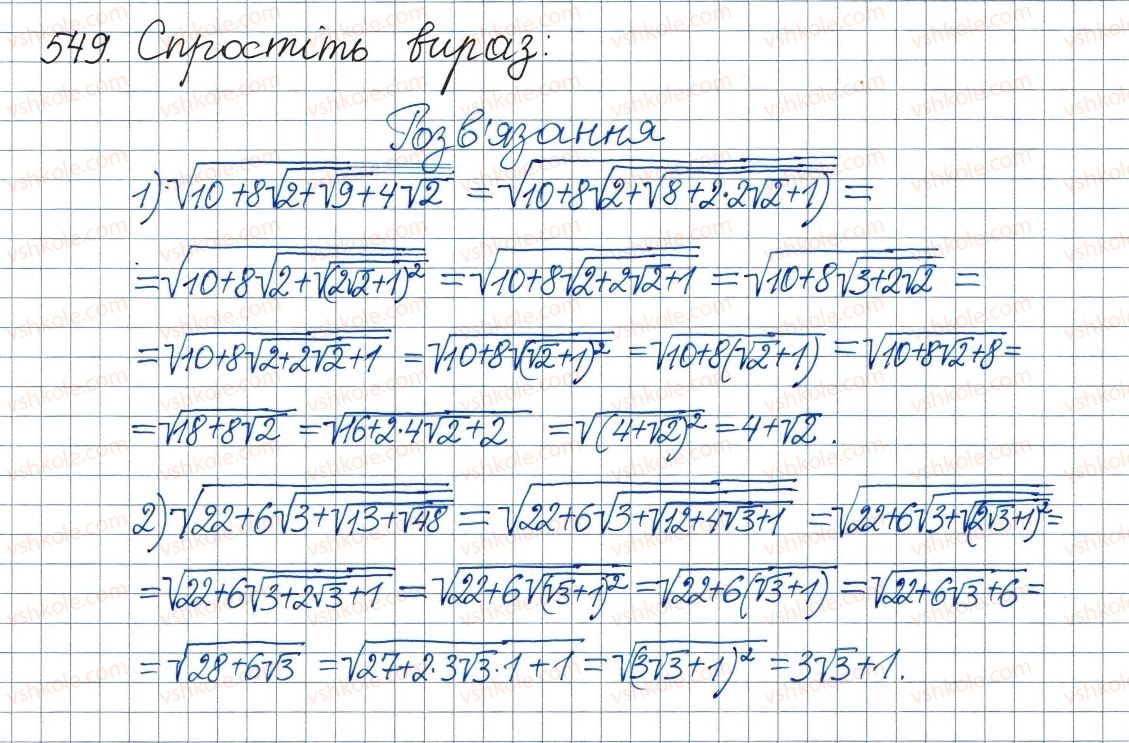 549. Спростіть вираз:
Розв'язання
1) √(10+8√(2+√(9+4√2))) = √(10+8√(2+√(8+2·2√2+1))) =
= √(10+8√(2+√((2√2+1)²))) = √(10+8√(2+2√2+1)) = √(10+8√(3+2√2)) =
= √(10+8√(2+2√2+1)) = √(10+8√((√2+1)²)) = √(10+8(√2+1)) = √(10+8√2+8) =
= √(18+8√2) = √(16+2·4√2+2) = √((4+√2)²) = 4+√2.
2) √(22+6√(3+√(13+√48))) = √(22+6√(3+√(12+4√3+1))) = √(22+6√(3+√((2√3+1)²))) =
= √(22+6√(3+2√3+1)) = √(22+6√((√3+1)²)) = √(22+6(√3+1)) = √(22+6√3+6) =
= √(28+6√3) = √(27+2·3√3·1+1) = √((3√3+1)²) = 3√3+1.